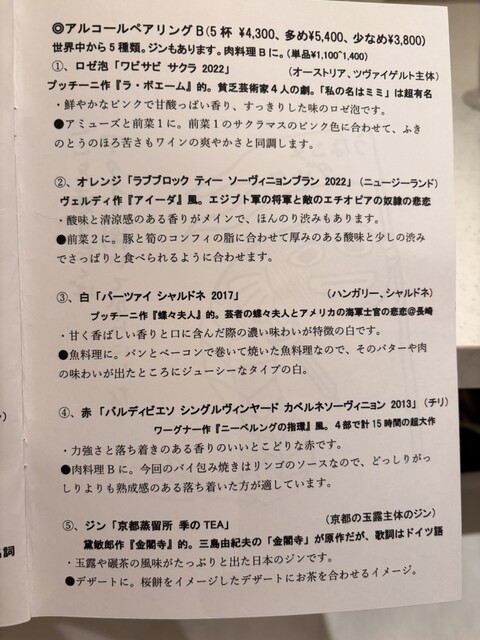 ◎アルコールペアリングB(5杯 ¥4,300、多め¥5,400、少なめ¥3,800)
世界中から5種類。ジンもあります。肉料理Bに。(単品¥1,100~1,400)
①、ロゼ泡「ワビサビ サクラ 2022」 (オーストリア、ツヴァイゲルト主体)
プッチーニ作『ラ・ボエーム』的。貧乏芸術家4人の劇。「私の名はミミ」は超有名
・鮮やかなピンクで甘酸っぱい香り、すっきりした味のロゼ泡です。
●アミューズと前菜1に。前菜1のサクラマスのピンク色に合わせて、ふき
のとうのほろ苦さもワインの爽やかさと同調します。
②、オレンジ「ラブブロック ティー ソーヴィニョンブラン 2022」(ニュージーランド)
ヴェルディ作『アイーダ』風。エジプト軍の将軍と敵のエチオピアの奴隷の悲恋
・酸味と清涼感のある香りがメインで、ほんのり渋みもあります。
●前菜2に。豚と筍のコンフィの脂に合わせて厚みのある酸味と少しの渋み
でさっぱりと食べられるように合わせます。
③、白「パーツァイ シャルドネ 2017」 (ハンガリー、シャルドネ)
プッチーニ作『蝶々夫人』的。芸者の蝶々夫人とアメリカの海軍士官の悲恋@長崎
・甘く香ばしい香りと口に含んだ際の濃い味わいが特徴の白です。
●魚料理に。パンとベーコンで巻いて焼いた魚料理なので、そのバターや肉
の味わいが出たところにジューシーなタイプの白。
④、赤「バルディビエソ シングルヴィンヤード カベルネソーヴィニョン 2013」(チリ)
ワーグナー作『ニーベルングの指環』風。4部で計15時間の超大作
・力強さと落ち着きのある香りのいいとこどりな赤です。
●肉料理Bに。今回のパイ包み焼きはリンゴのソースなので、どっしりがっ
しりよりも熟成感のある落ち着いた方が適しています。
⑤、ジン「京都蒸留所 季のTEA」 (京都の玉露主体のジン)
黛敏郎作『金閣寺』的。三島由紀夫の「金閣寺」が原作だが、歌詞はドイツ語
・玉露や碾茶の風味がたっぷりと出た日本のジンです。
●デザートに。桜餅をイメージしたデザートにお茶を合わせるイメージ。